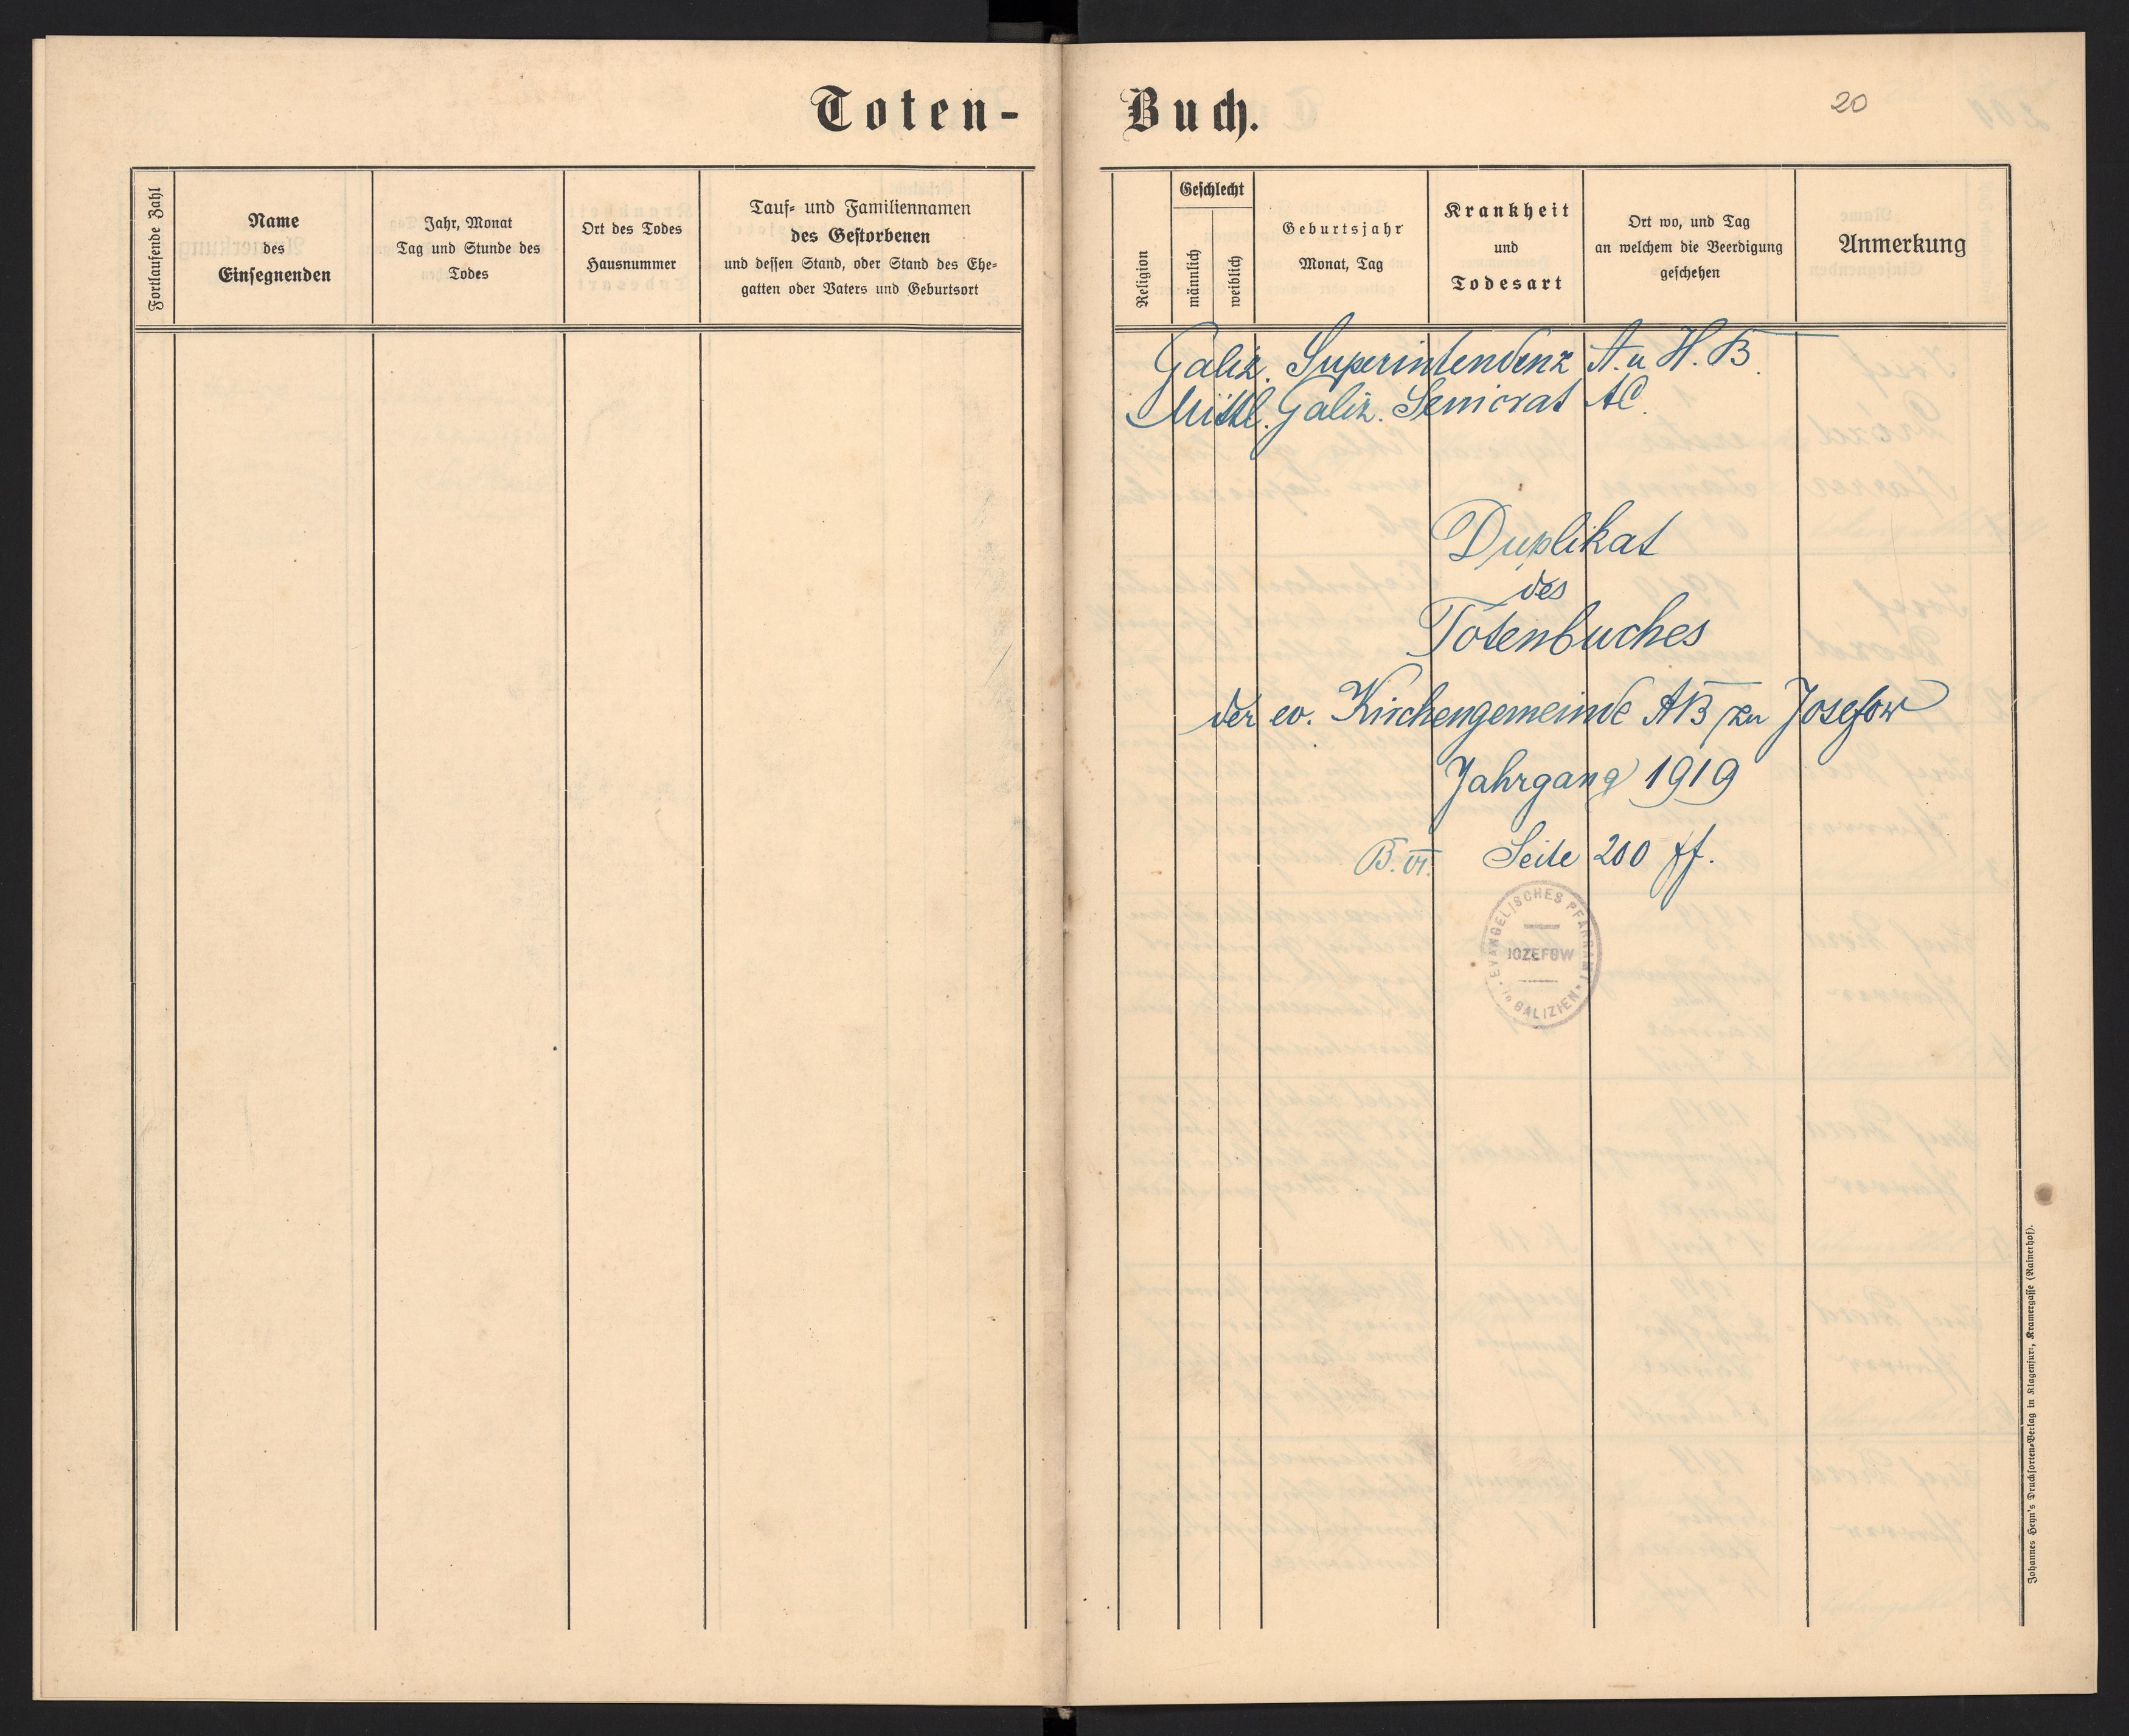 Toten-
Fortlaufende Zahl
Name
des
Einsegnenden
Jahr, Monat
Tag und Stunde des
Todes
Ort des Todes
Hausnummer
Tauf- und Familiennamen
des Gestorbenen
und dessen Stand, oder Stand des Ehe-
gatten oder Vaters und Geburtsort
Buch.
20
Religion
Geschlecht
männlich
weiblich
Geburtsjahr
Monat, Tag
Krankheit
und
Todesart
Ort wo, und Tag
an welchem die Beerdigung
geschehen
Anmerkung
Galiz. Superintendenz A. u H. B.
Mittl. Galiz. Seniorat AC.
Duplikat
des
Totenbuches
der ev. Kirchengemeinde AB zu Josefow
Jahrgang 1919
B. VI. Seite 200 ff.
EVANGELISCHES PFARRAMT
JOZEFOW
in GALIZIEN
Johannes Heyn's Drucksorten-Verlag in Klagenfurt, Kramergasse (Rainerhof).